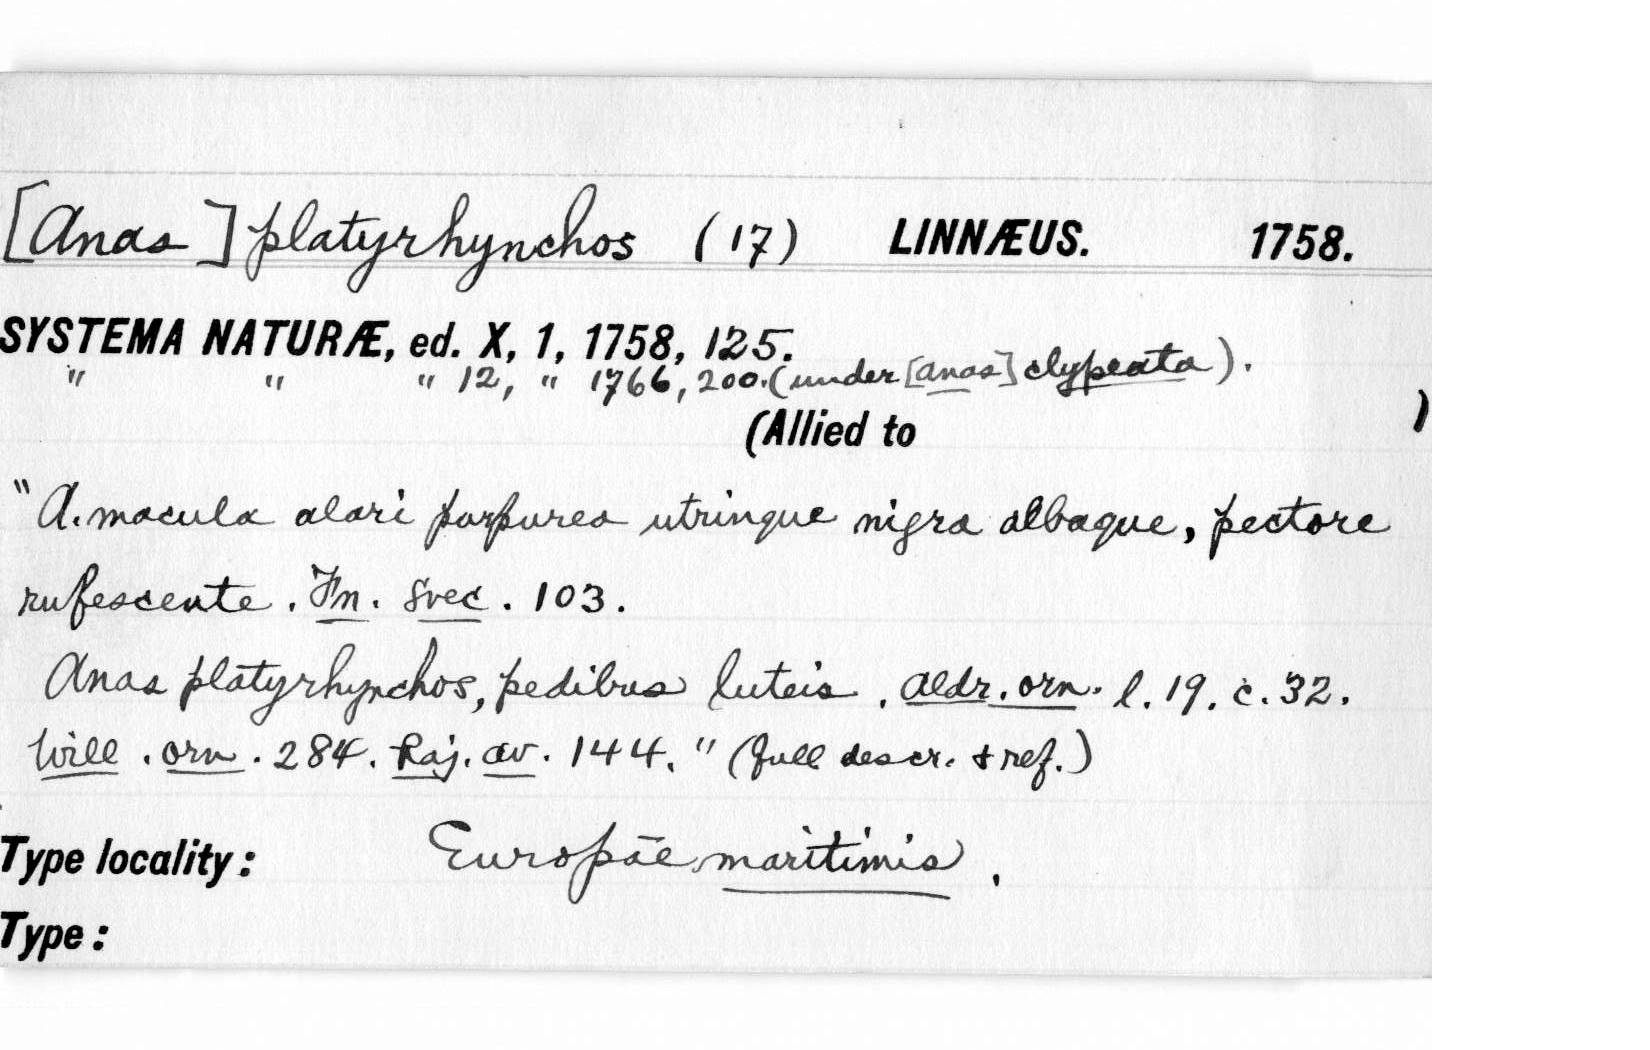 [Anas] platyrhynchos (17) LINNÆUS. 1758.
SYSTEMA NATURÆ, ed. X, 1, 1758, 125.
" " " 12, " 1766, 200. (under [Anas] clypeata).
(Allied to )
"A. macula alari purpurea utrinque nigra albaque, pectore
rufescente. Fn. Svec. 103.
Anas platyrhynchos, pedibus luteis. Aldr. orn. l. 19. c. 32.
Will. orn. 284. Raj. av. 144." (full descr. & ref.)
Type locality: Europae maritimis.
Type: